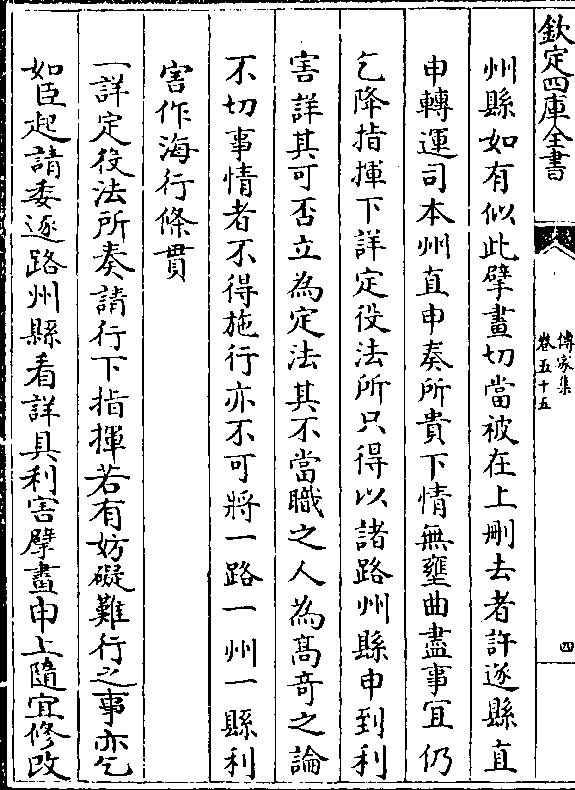 欽定四庫全書
傳家集
卷五十五
四
州縣如有似此擘畫切當被在上刪去者許逐縣直
申轉運司本州直申奏所貴下情無壅曲盡事宜仍
乞降指揮下詳定役法所只得以諸路州縣申到利
害詳其可否立為定法其不當職之人為髙竒之論
不切事情者不得施行亦不可將一路一州一縣利
害作海行條貫
一詳定役法所奏請行下指揮若有妨礙難行之事亦乞
如臣起請委逐路州縣看詳具利害擘畫申上隨宜修改